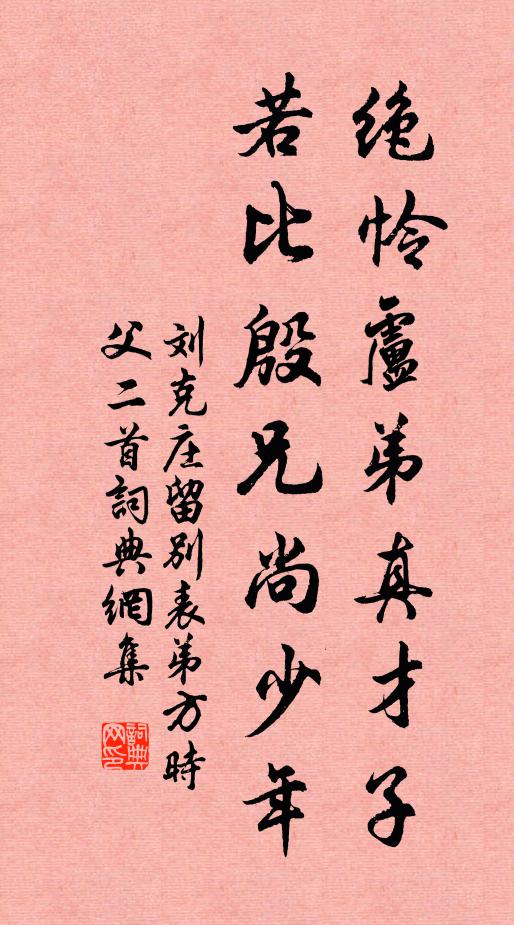 绝怜卢弟真才子
若比殷兄尚少年
刘克庄留别表弟方时
父二首詞典網集
詞典网印